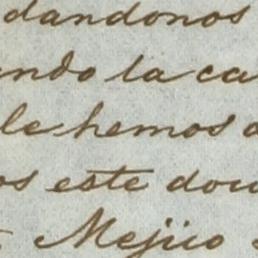 dandonos
ndo la ca
le hemos
os este docu
Mejico